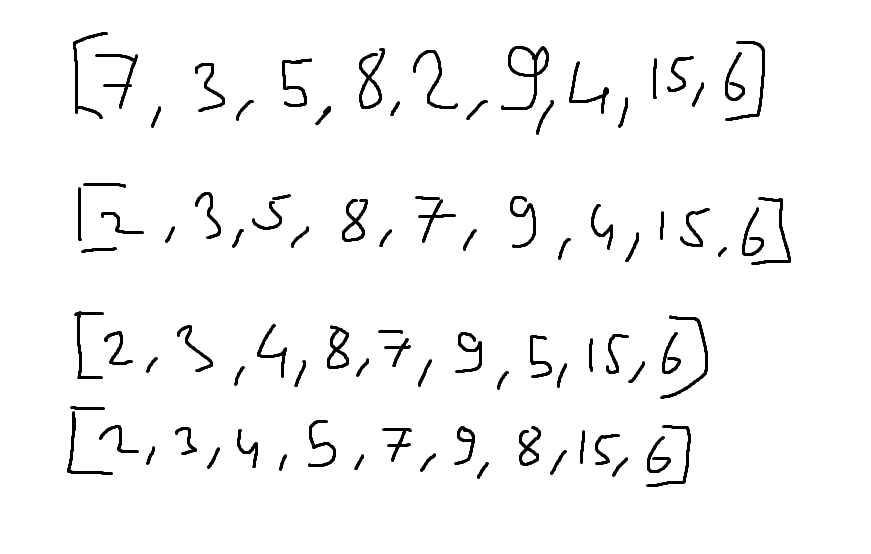 [7, 3, 5, 8, 2, 9, 4, 15, 6]
[2, 3, 5, 8, 7, 9, 4, 15, 6]
[2, 3, 4, 8, 7, 9, 5, 15, 6]
[2, 3, 4, 5, 7, 9, 8, 15, 6]